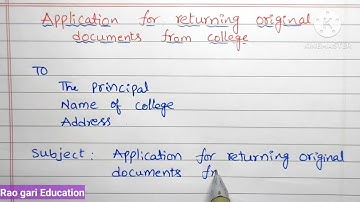 Application for returning original
documents from college
To
The Principal
Name of college
Address
Subject: Application for returning original
documents fr
Rao gari Education